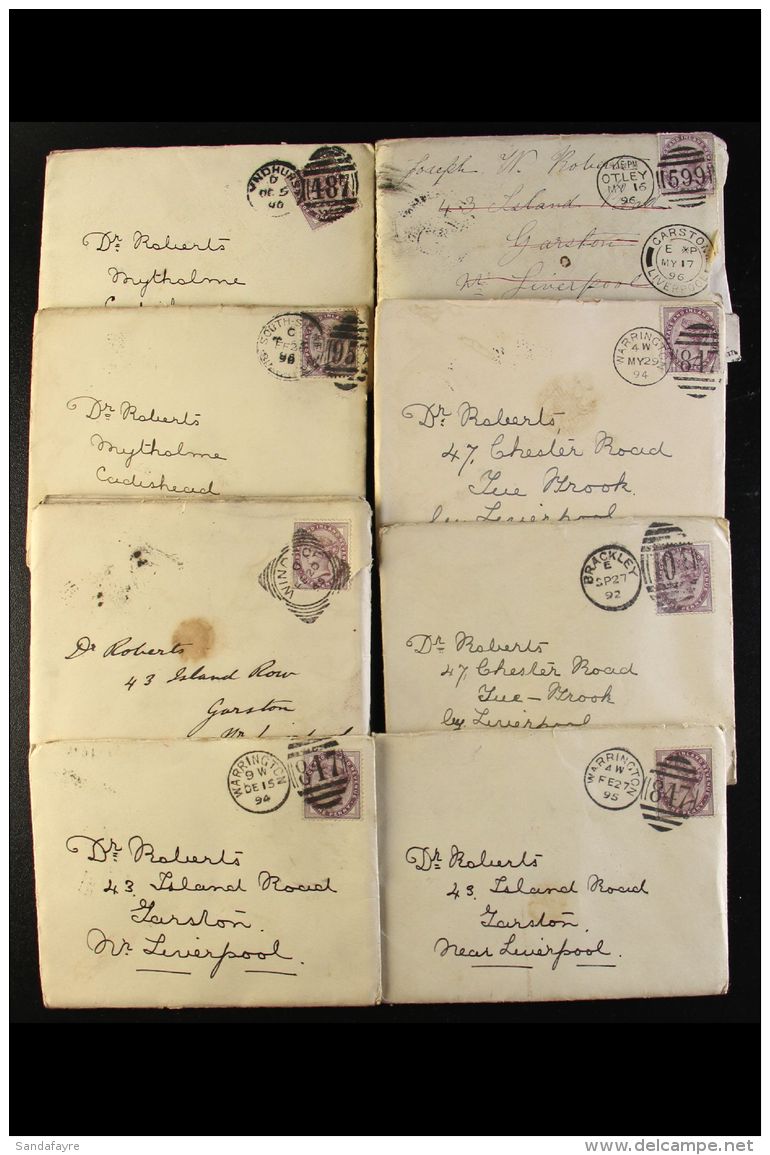 487
DE 5
96
Dr. Roberts
Mytholme
Cadishead
Joseph W. Roberts
43 Island Road
Garston
Nr. Liverpool
OTLEY
MY 16
96
599
GARSTON
MY 17
96
LIVERPOOL
C
95
Dr. Roberts
Mytholme
Cadishead
WARRINGTON
4 W
MY 29
94
847
Dr. Roberts
47, Chester Road
Tue Brook
by Liverpool
Dr Roberts
43 Island Row
Garston
Nr. Liverpool
BRACKLEY
E
SP 27
92
Dr. Roberts
47, Chester Road
Tue-Brook
by Liverpool
WARRINGTON
9 W
DE 15
94
847
Dr. Roberts
43, Island Road
Garston.
Nr. Liverpool.
WARRINGTON
4 W
FE 27
95
847
Dr. Roberts
43, Island Road
Garston,
Near Liverpool.
Sandafayre
delcampe.net